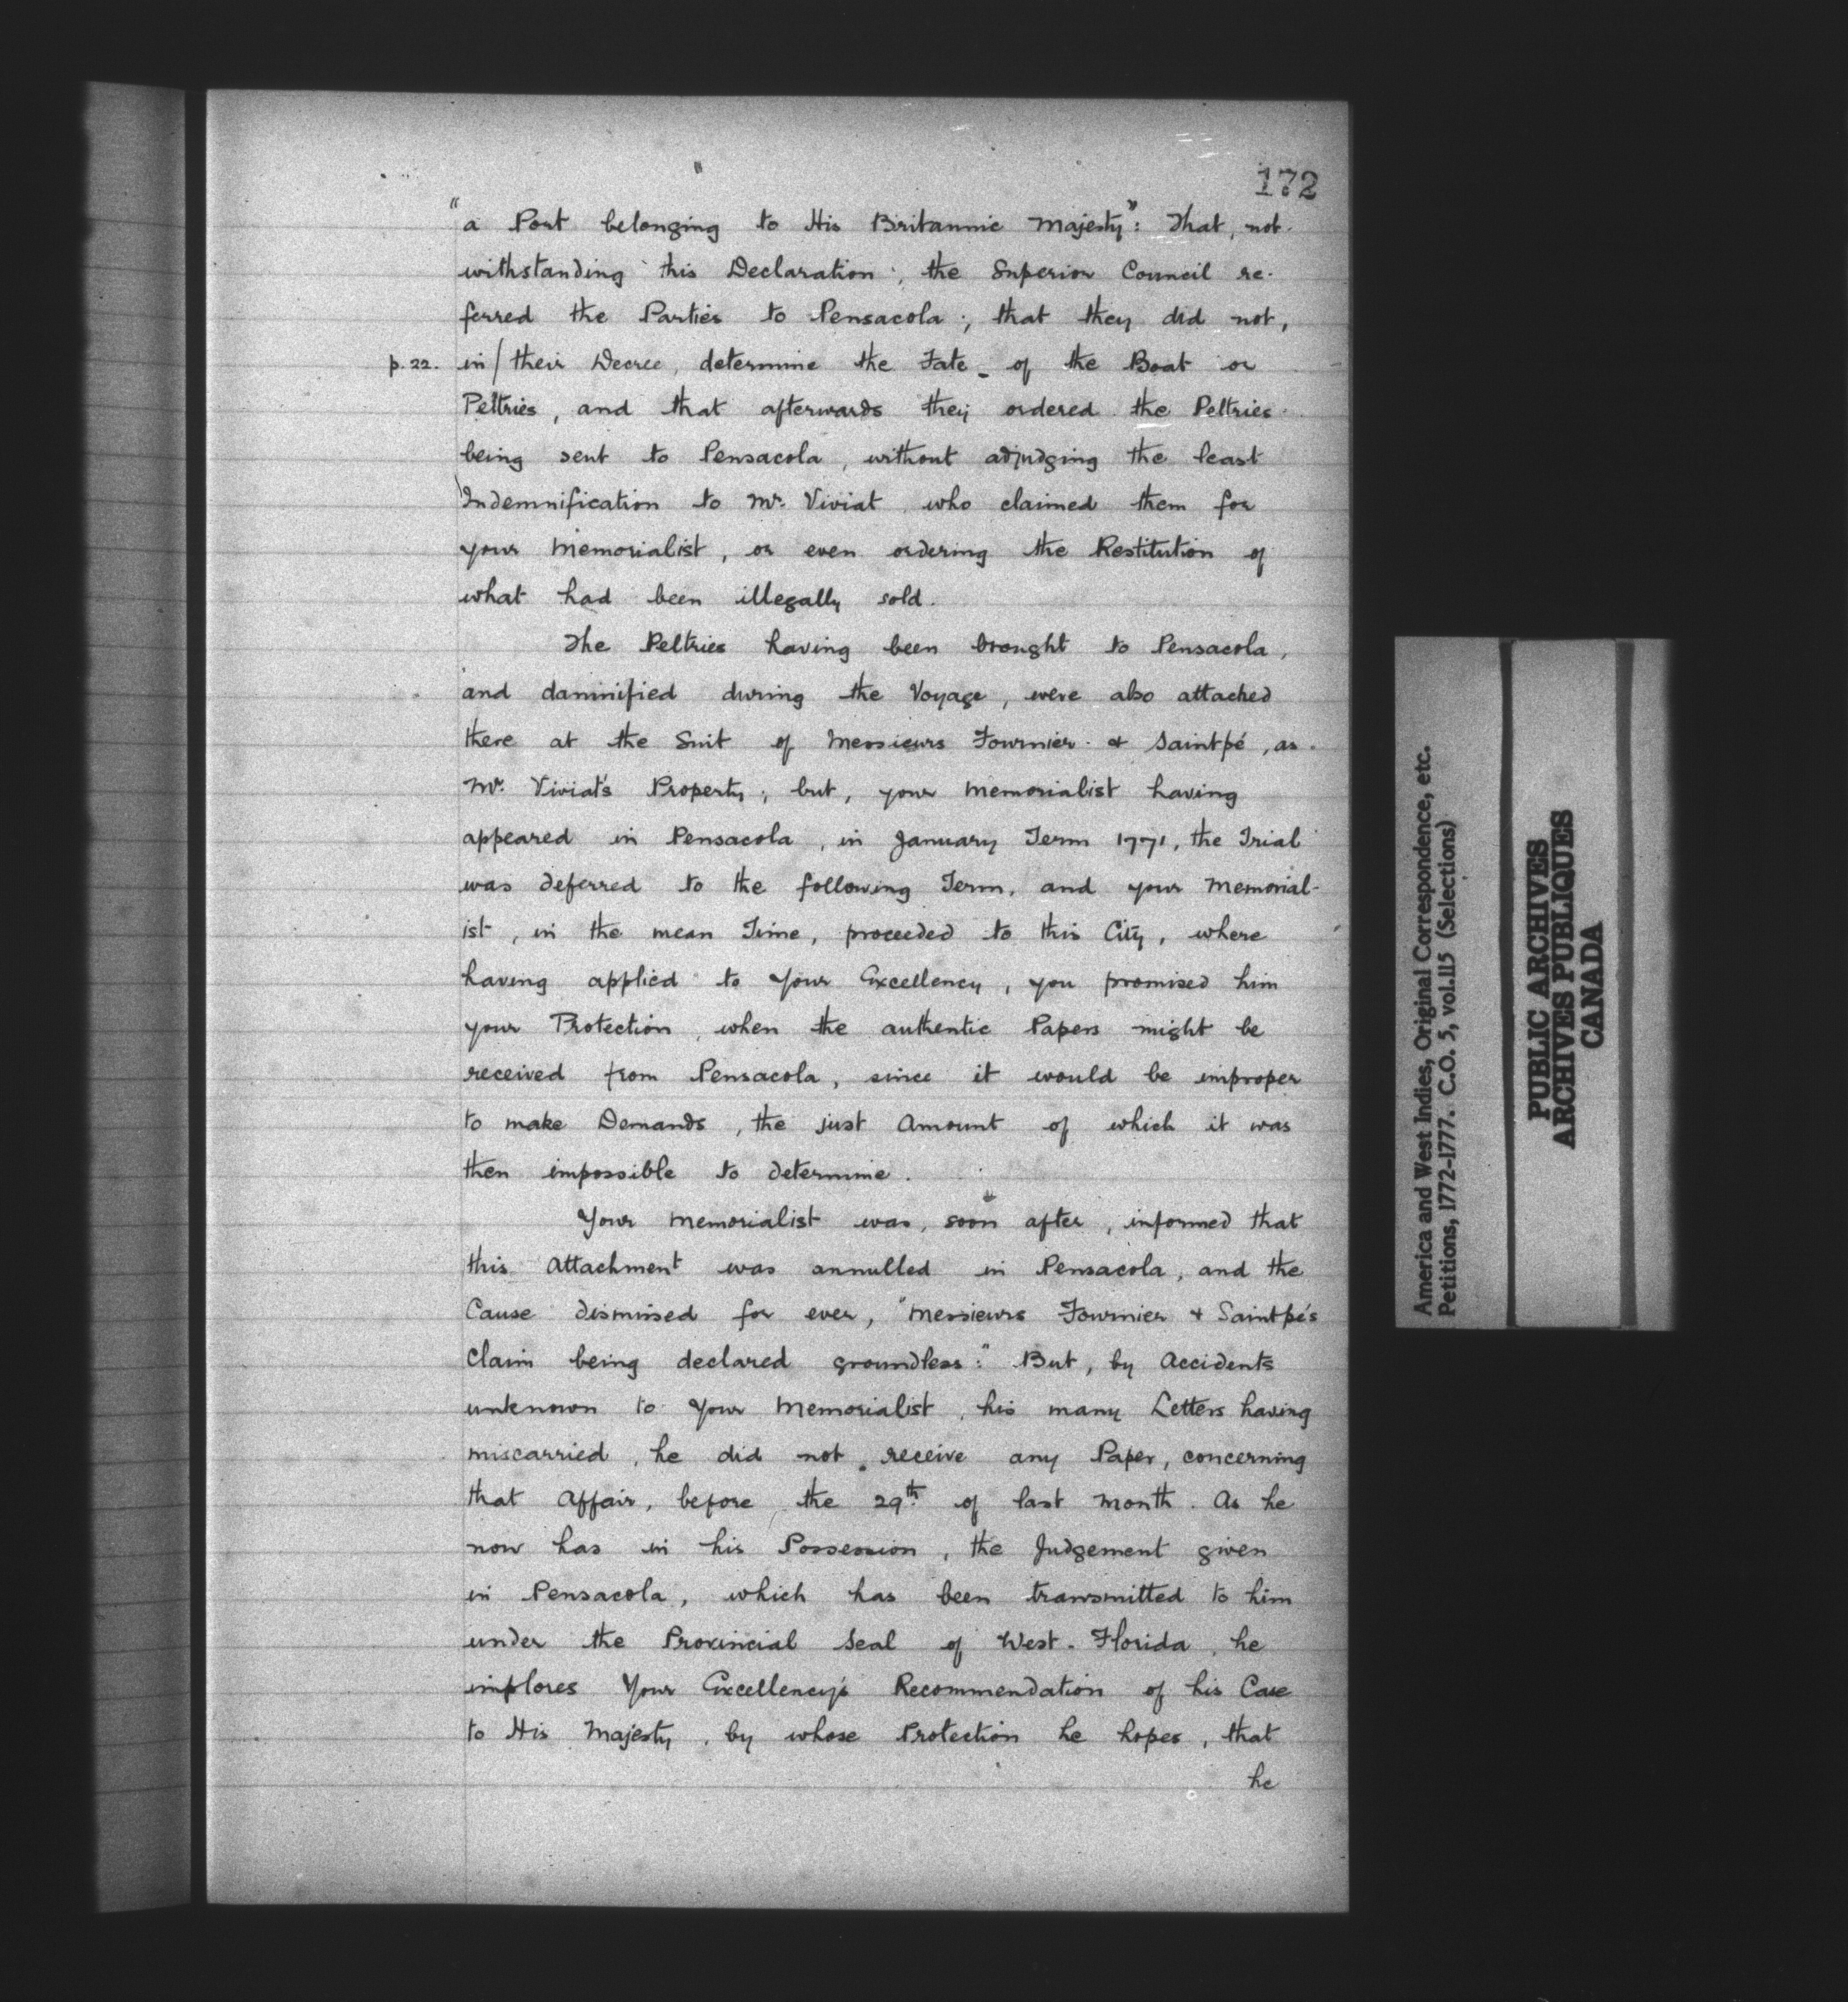 172
"a Port belonging to His Britannic Majesty": That, not-
withstanding this Declaration, the Superior Council re-
ferred the Parties to Pensacola; that they did not,
p.22. in/their Decree, determine the Fate of the Boat or
Peltries, and that afterwards they ordered the Peltries
being sent to Pensacola, without adjudging the least
Indemnification to Mr. Viviat who claimed them for
your Memorialist, or even ordering the Restitution of
what had been illegally sold.
The Peltries having been brought to Pensacola,
and damnified during the Voyage, were also attached
there at the Suit of Messieurs Fournier & Saintpé, as
Mr. Viviat's Property; but, your Memorialist having
appeared in Pensacola, in January Term 1771, the Trial
was deferred to the following Term, and your Memorial-
ist, in the mean Time, proceeded to this City, where
having applied to Your Excellency, you promised him
your Protection, when the authentic Papers might be
received from Pensacola, since it would be improper
to make Demands, the just Amount of which it was
then impossible to determine.
Your Memorialist was, soon after, informed that
this Attachment was annulled in Pensacola, and the
Cause dismissed for ever, "Messieurs Fournier & Saintpé's
Claim being declared groundless:" But, by Accidents
unknown to Your Memorialist, his many Letters having
miscarried, he did not receive any Paper, concerning
that Affair, before the 29th. of last Month. As he
now has in his Possession, the Judgement given
in Pensacola, which has been transmitted to him
under the Provincial Seal of West-Florida, he
implores Your Excellency's Recommendation of his Case
to His Majesty, by whose Protection he hopes, that
he
America and West Indies, Original Correspondence, etc.
Petitions, 1772-1777. C.O. 5, vol.115 (Selections)
PUBLIC ARCHIVES
ARCHIVES PUBLIQUES
CANADA